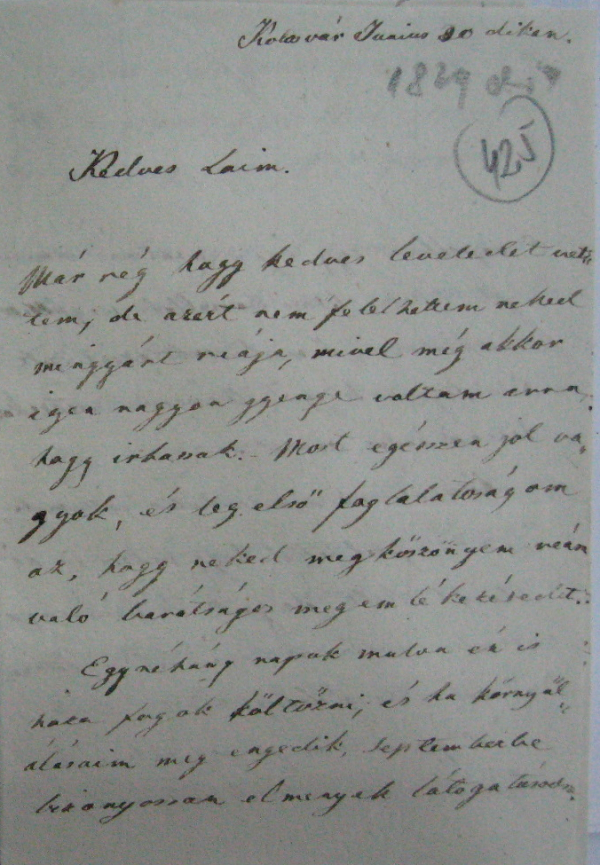 Kolosvár Junius 20 dikan.
1829
425
Kedves Laim.
Már rég hogy kedves leveledet vet=
tem, de azért nem felelhettem neked
mingyárt reája, mivel még akkor
igen nagyon gyenge voltam arra,
hogy irhassak. Most egészen jol va=
gyok, és leg első foglalatoságom
az, hogy neked megköszönyem reám
való barátságos megemlékezésedet.
Egynéhány napok mulva én is
haza fogok költözni, és ha környül=
álásaim meg engedik, septemberbe
bizonyossan elmenyek látogatásodra.